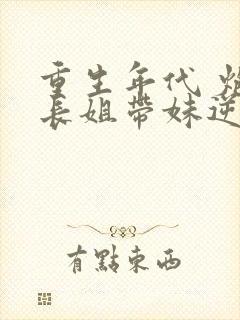 重生年代
長姐帶妹逆
有點東西